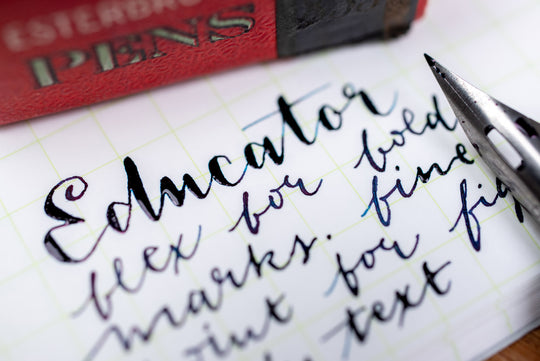 ESTERBRO
PENS
Educator
flex for bold
marks. fine
point for fig
text